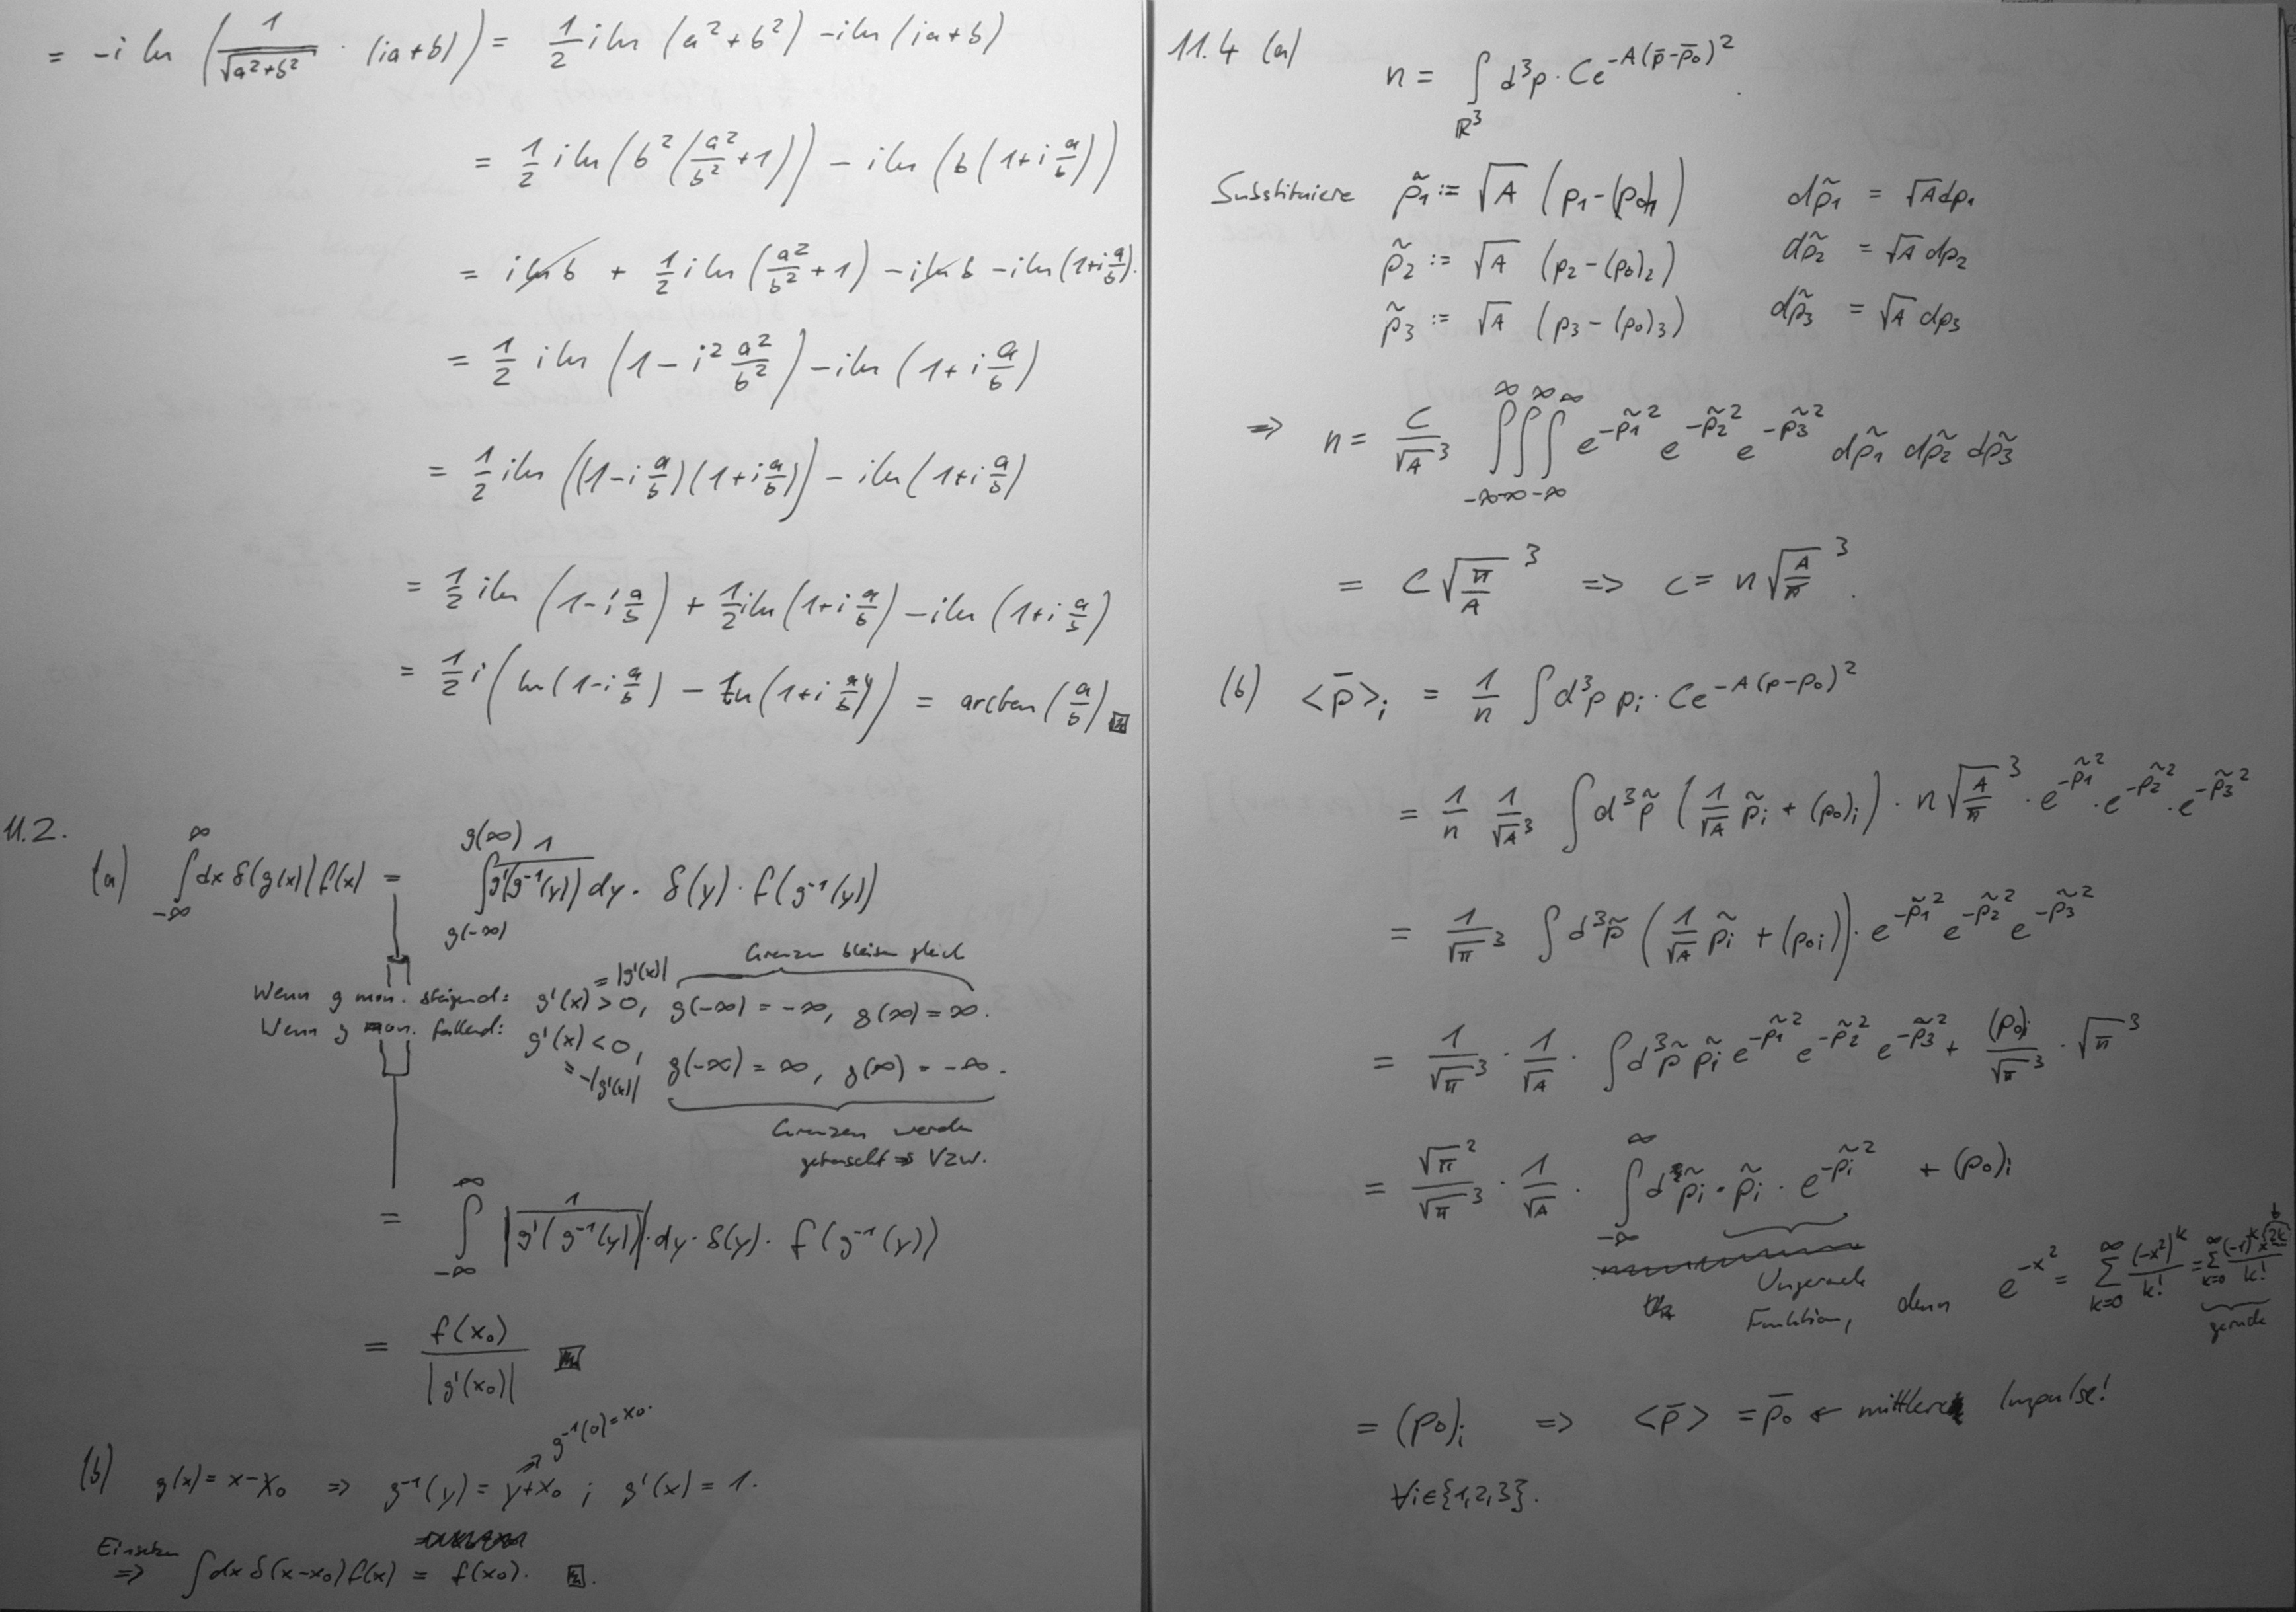 = -i ln (1/√(a²+b²) · (ia+b)) = 1/2 i ln (a²+b²) - i ln (ia+b)
= 1/2 i ln (b² (a²/b² + 1)) - i ln (b (1+i a/b))
= i ln b + 1/2 i ln (a²/b² + 1) - i ln b - i ln (1+i a/b).
= 1/2 i ln (1 - i² a²/b²) - i ln (1+ i a/b)
= 1/2 i ln ((1-i a/b)(1+i a/b)) - i ln (1+i a/b)
= 1/2 i ln (1-i a/b) + 1/2 i ln (1+i a/b) - i ln (1+i a/b)
= 1/2 i (ln (1-i a/b) - ln (1+i a/b)) = arctan (a/b)
11.2.
(a) ∫_{-∞}^{∞} dx δ(g(x)) f(x) = ∫_{g(-∞)}^{g(∞)} 1/g'(g⁻¹(y)) dy · δ(y) · f(g⁻¹(y))
Grenzen bleiben gleich
= |g'(x)|
Wenn g mon. steigend: g'(x) > 0, g(-∞) = -∞, g(∞) = ∞.
Wenn g mon. fallend: g'(x) < 0, g(-∞) = ∞, g(∞) = -∞.
= -|g'(x)|
Grenzen werden
getauscht => VZW.
= ∫_{-∞}^{∞} |1/g'(g⁻¹(y))| · dy · δ(y) · f(g⁻¹(y))
= f(x₀)/|g'(x₀)|
=> g⁻¹(0) = x₀.
(b) g(x) = x-x₀ => g⁻¹(y) = y+x₀ ; g'(x) = 1.
Einsetzen
=> ∫ dx δ(x-x₀) f(x) = f(x₀).
11.4 (a) n = ∫_{ℝ³} d³p · C e^{-A(p̄-p̄₀)²}.
Substituiere p̃₁ := √A (p₁-(p₀)₁) dp̃₁ = √A dp₁
p̃₂ := √A (p₂-(p₀)₂) dp̃₂ = √A dp₂
p̃₃ := √A (p₃-(p₀)₃) dp̃₃ = √A dp₃
=> n = C/√A³ ∫_{-∞}^{∞} ∫_{-∞}^{∞} ∫_{-∞}^{∞} e^{-p̃₁²} e^{-p̃₂²} e^{-p̃₃²} dp̃₁ dp̃₂ dp̃₃
= C √(π/A)³ => C = n √(A/π)³.
(b) <p̄>ᵢ = 1/n ∫ d³p pᵢ · C e^{-A(p-p₀)²}
= 1/n 1/√A³ ∫ d³p̃ (1/√A p̃ᵢ + (p₀)ᵢ) · n √(A/π)³ · e^{-p̃₁²} · e^{-p̃₂²} · e^{-p̃₃²}
= 1/√π³ ∫ d³p̃ (1/√A p̃ᵢ + (p₀ᵢ)) · e^{-p̃₁²} e^{-p̃₂²} e^{-p̃₃²}
= 1/√π³ · 1/√A · ∫ d³p̃ p̃ᵢ e^{-p̃₁²} e^{-p̃₂²} e^{-p̃₃²} + (p₀)ᵢ/√π³ · √π³
= √π²/√π³ · 1/√A · ∫_{-∞}^{∞} dp̃ᵢ · p̃ᵢ · e^{-p̃ᵢ²} + (p₀)ᵢ
Ungerade
Funktion, denn e^{-x²} = Σ_{k=0}^{∞} (-x²)^k/k! = Σ_{k=0}^{∞} (-1)^k x^{2k}/k!
gerade
= (p₀)ᵢ => <p̄> = p̄₀ ← mittlere Impulse!
∀i∈{1,2,3}.